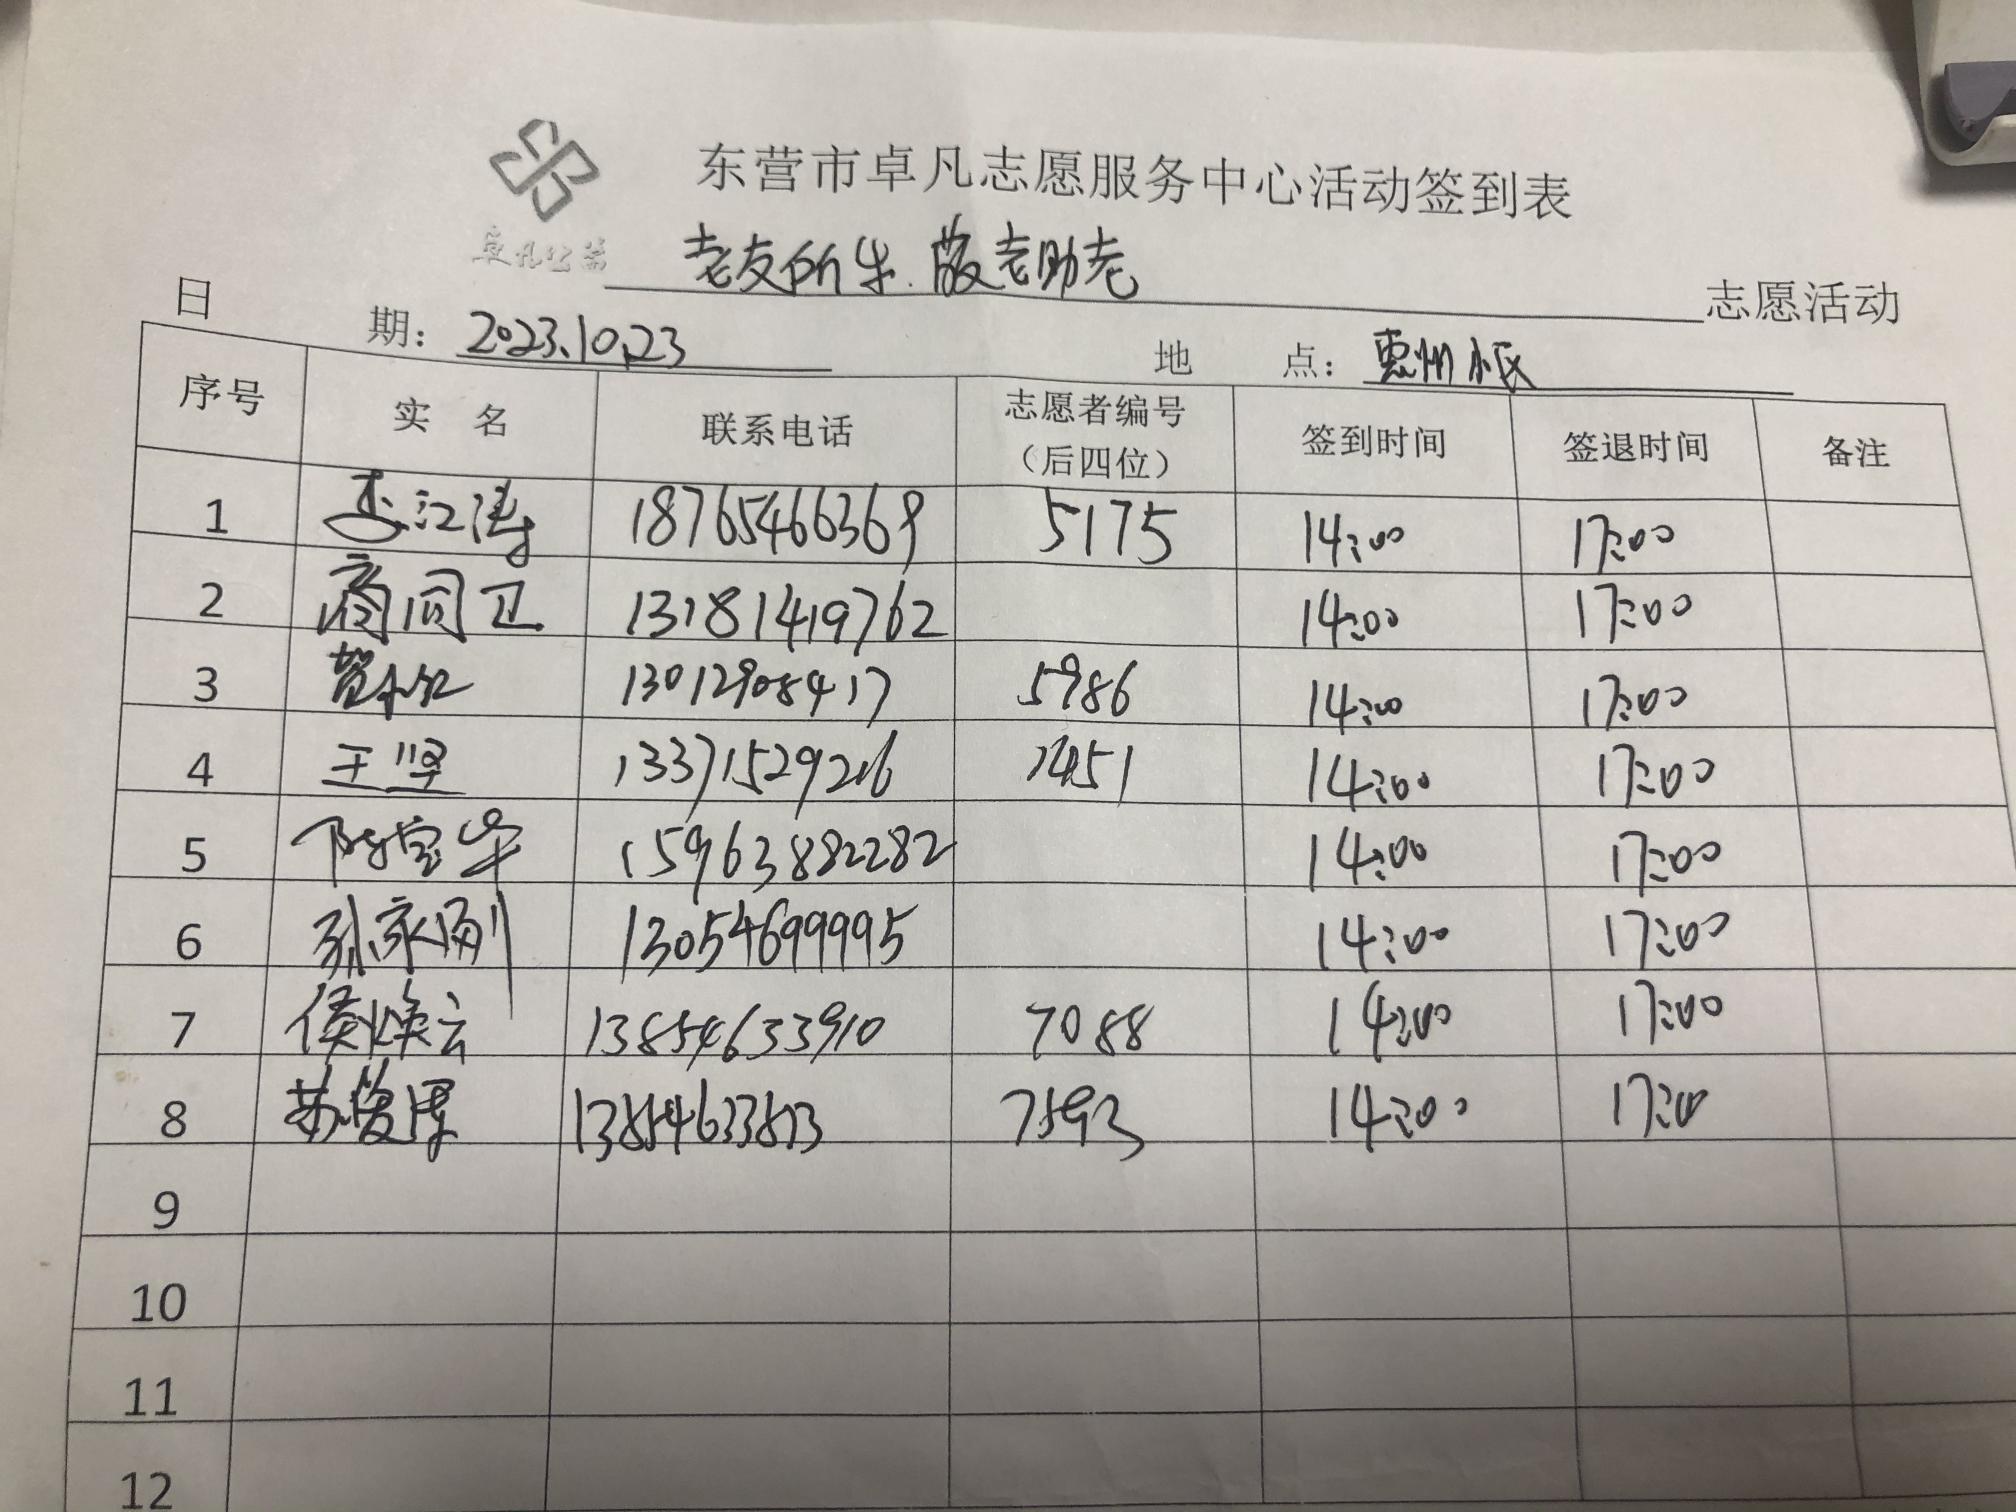 东营市卓凡志愿服务中心活动签到表
卓凡公益
老有所乐.敬老助老 志愿活动
日 期：2023.10.23 地 点：惠州小区
序号 实 名 联系电话 志愿者编号（后四位） 签到时间 签退时间 备注
1 李江涛 18765466369 5175 14:00 17:00
2 商同卫 13181419762 14:00 17:00
3 13012908417 5986 14:00 17:00
4 王坚 13371529216 14:00 17:00
5 陈宝华 15963882282 14:00 17:00
6 孙永刚 13054699995 14:00 17:00
7 侯焕云 13854633910 7088 14:00 17:00
8 苏俊厚 7593 14:00 17:00
9
10
11
12